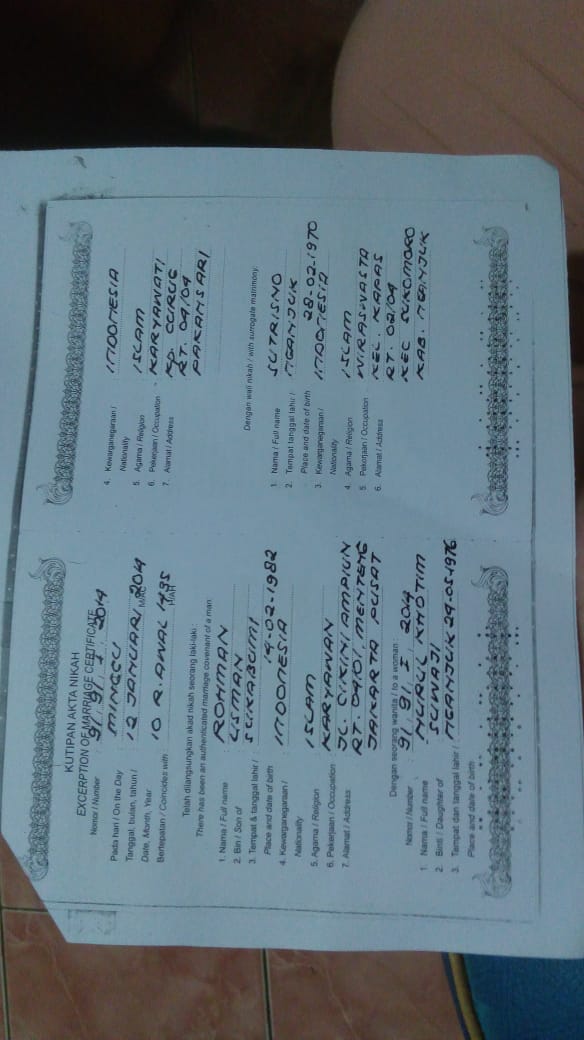 KUTIPAN AKTA NIKAH
EXCERPTION OF MARRIAGE CERTIFICATE
Nomor / Number : 91, 91, I, 2014
Pada hari / On the Day : MINGGU
Tanggal, bulan, tahun / : 12 JANUARI, 2014
Date, Month, Year M/AC
Bertepatan / Coincides with : 10 R. AWAL 1435
H/AH
Telah dilangsungkan akad nikah seorang laki-laki :
There has been an authenticated marriage covenant of a man:
1. Nama / Full name : ROHMAN
2. Bin / Son of : USMAN
3. Tempat & tanggal lahir / : SUKABUMI
Place and date of birth 14-02-1982
4. Kewarganegaraan / : INDONESIA
Nationality
5. Agama / Religion : ISLAM
6. Pekerjaan / Occupation : KARYAWAN
7. Alamat / Address : JL. CIKINI AMPIUN
RT. 04/01, MENTENG
JAKARTA PUSAT
Dengan seorang wanita / to a woman :
Nomor / Number : 91, 91, I, 2014
1. Nama / Full name : NURUL KHOTIM
2. Binti / Daughter of : SUWAJI
3. Tempat dan tanggal lahir / : NGANJUK 24-05-1976
Place and date of birth
4. Kewarganegaraan / : INDONESIA
Nationality
5. Agama / Religion : ISLAM
6. Pekerjaan / Occupation : KARYAWATI
7. Alamat / Address : KP. CURUG
RT. 04/04
PAKANSARI
Dengan wali nikah / with surrogate matrimony:
1. Nama / Full name : SUTRISNO
2. Tempat tanggal lahir / : NGANJUK
Place and date of birth 28-02-1970
3. Kewarganegaraan / : INDONESIA
Nationality
4. Agama / Religion : ISLAM
5. Pekerjaan / Occupation : WIRASWASTA
6. Alamat / Address : KEL. KAPAS
RT. 02/04
KEC SUKOMORO
KAB. NGANJUK